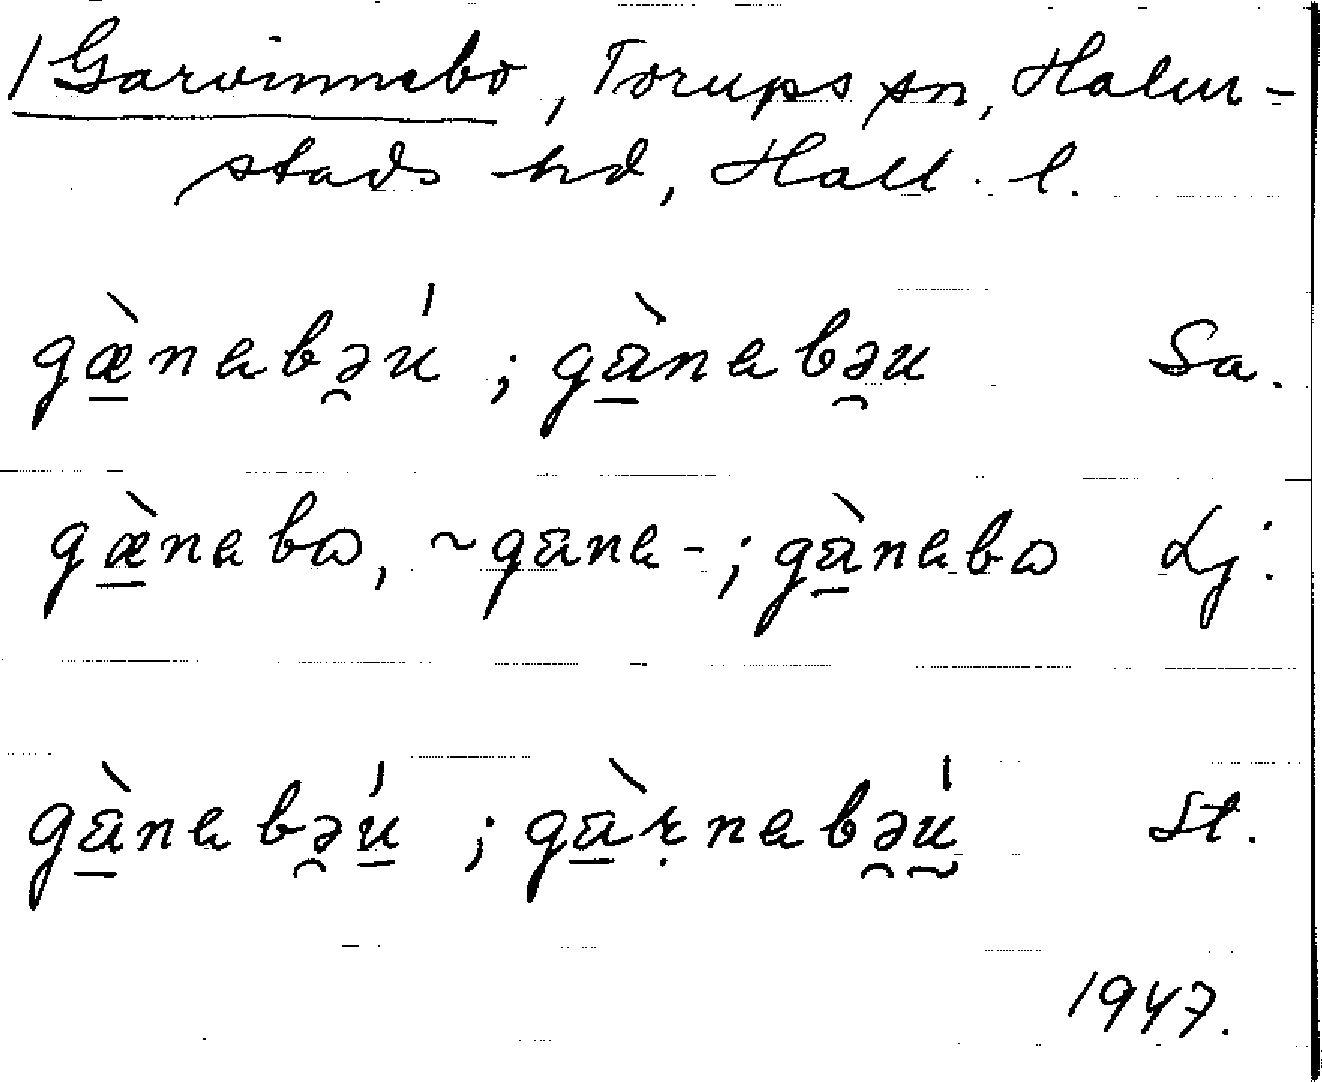 /Garvinnebo, Torups sn, Halm-
stads hd, Hall. l.
gæ̱̀nabə̯ú ; gā̱̀nabə̯u Sa.
gæ̱̀nabω, ~gāna-; gā̱̀nabω Lj:
gā̱̀nabə̯ú̱ ; gā̱̀ṛnabə̯ṵ́ St.
1947.